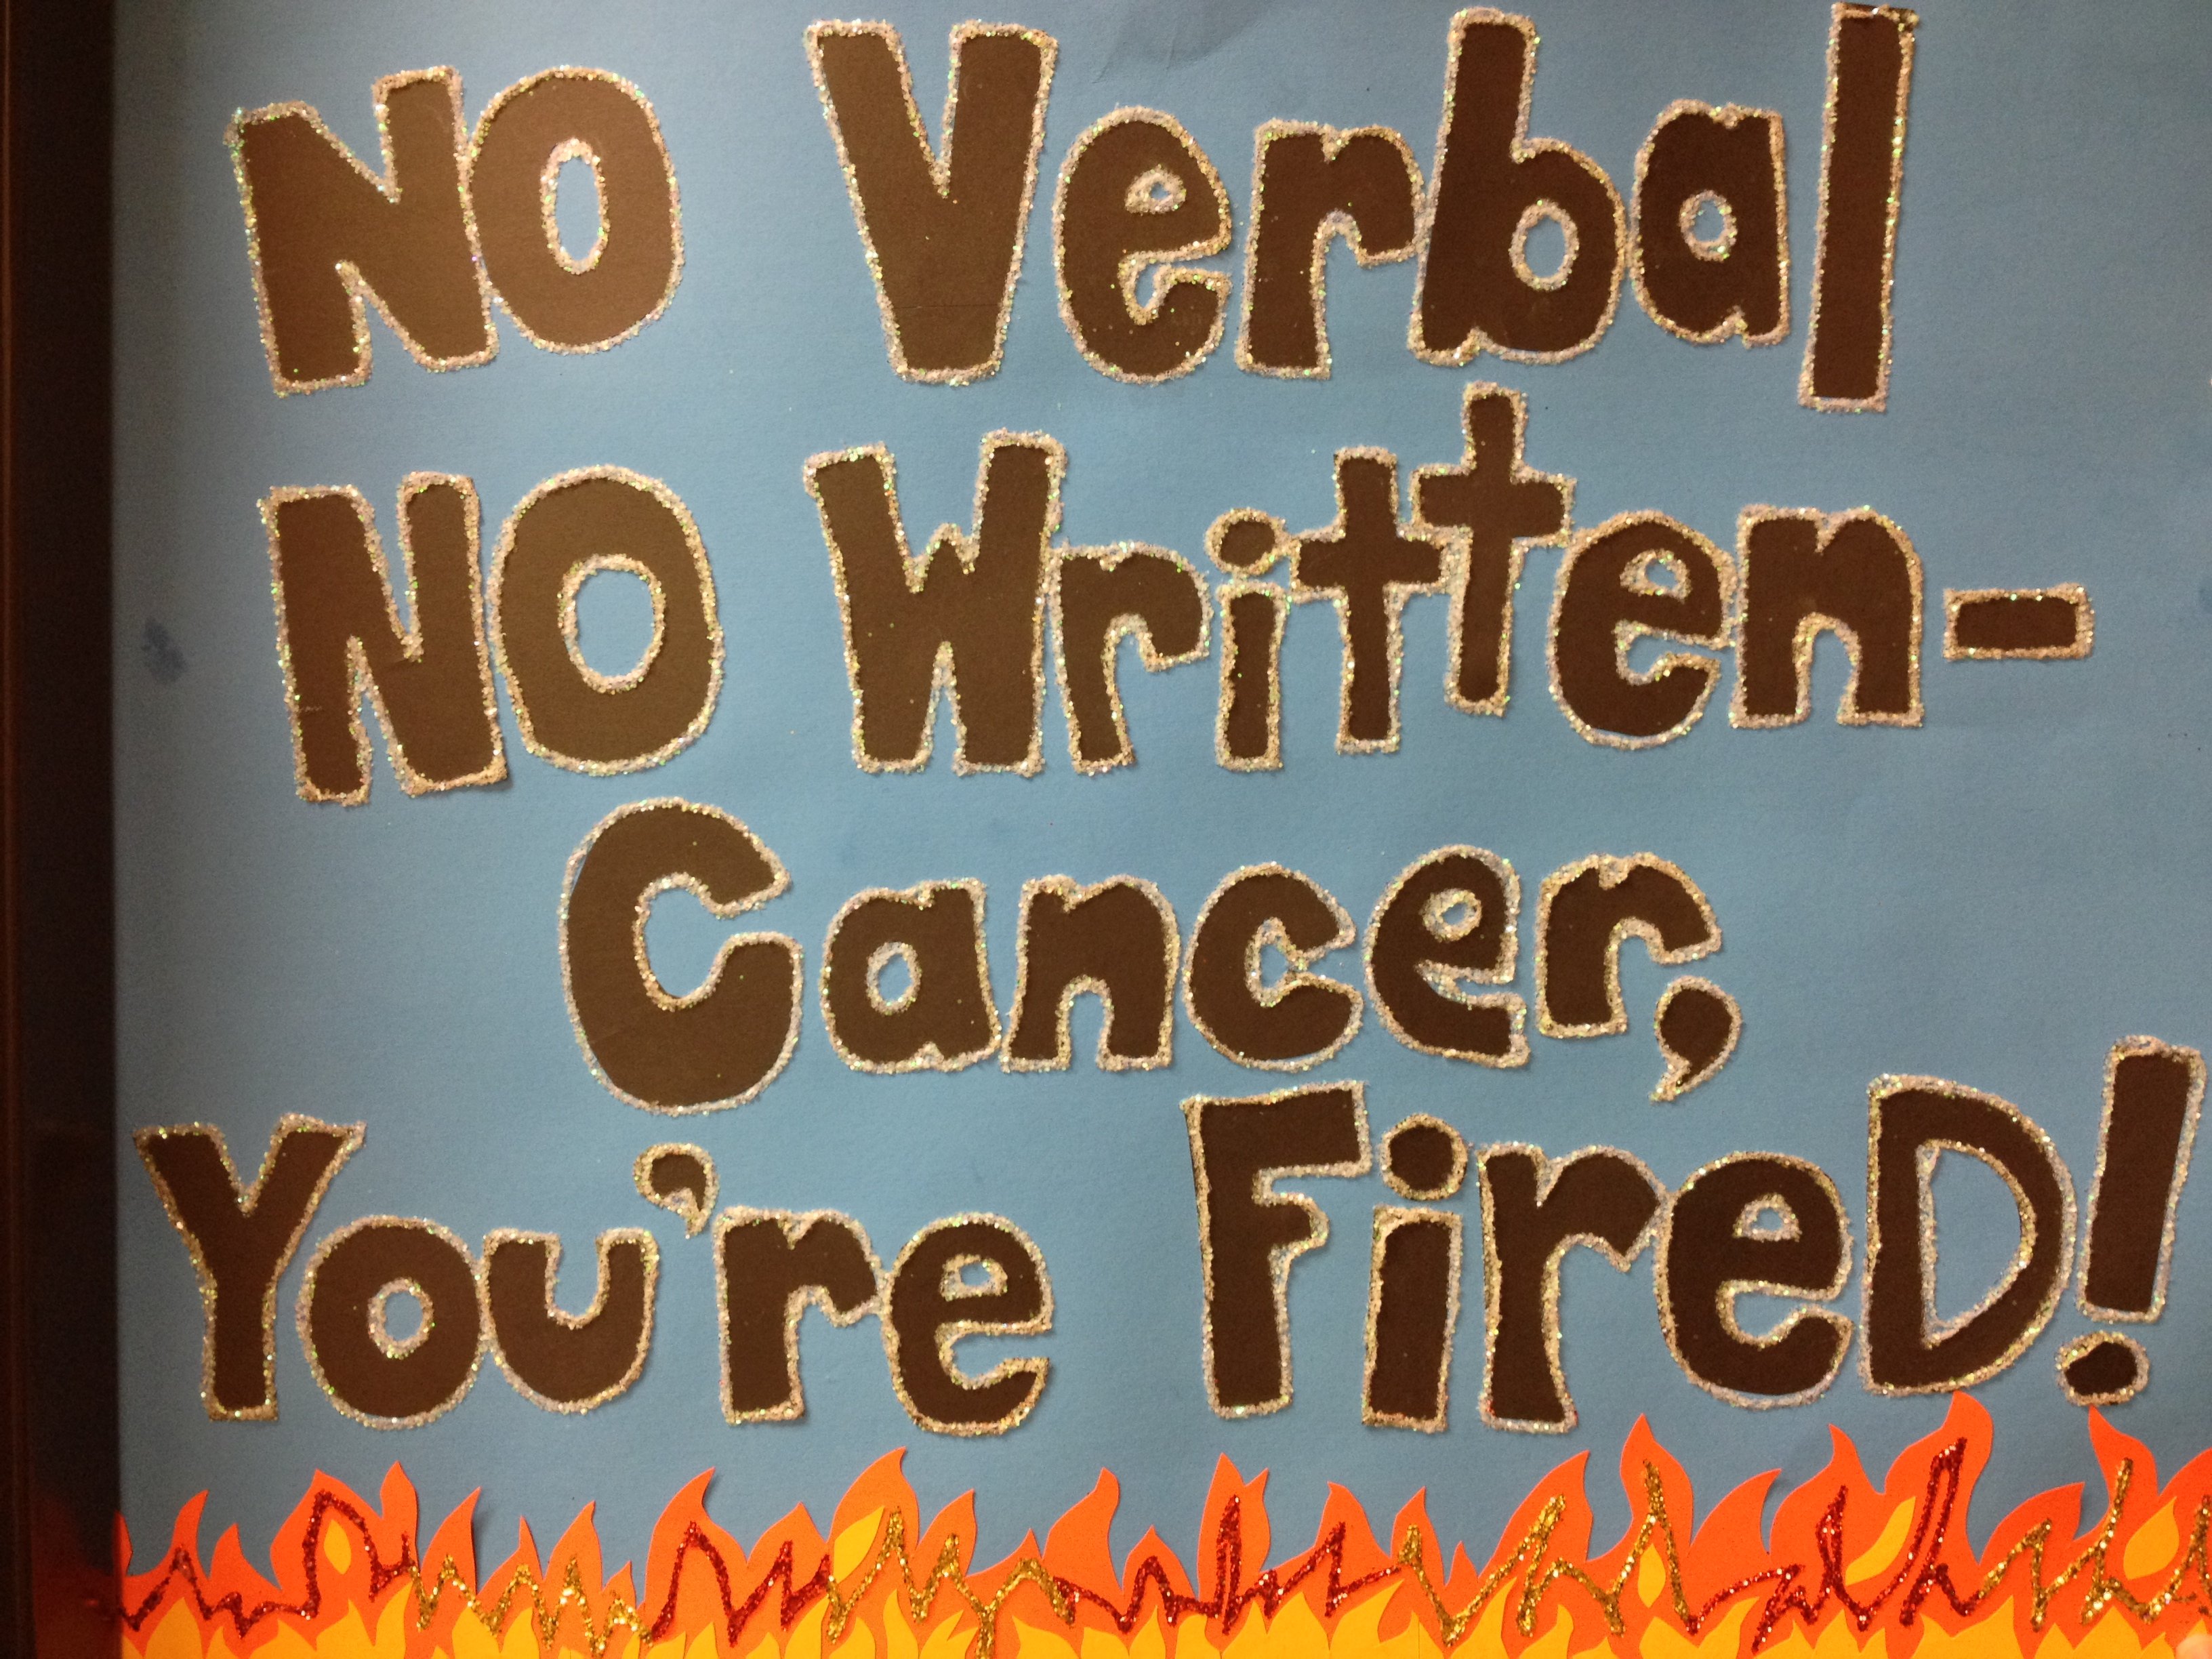 NO Verbal
NO Written-
Cancer,
You're FireD!